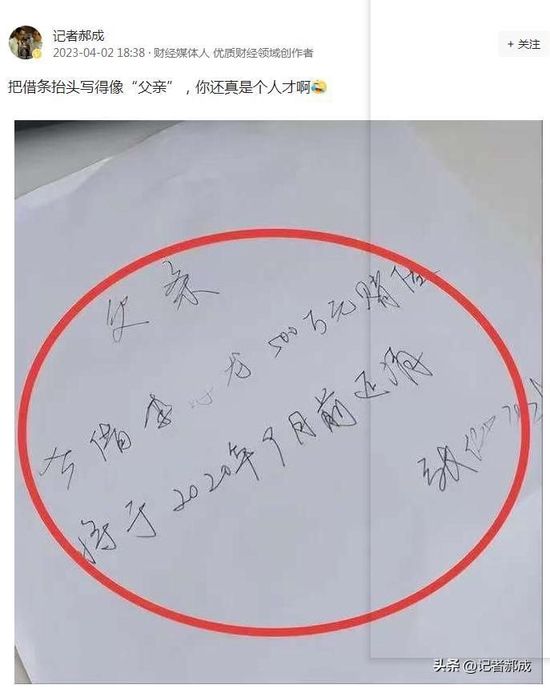 记者郝成
2023-04-02 18:38 · 财经媒体人 优质财经领域创作者
+ 关注
把借条抬头写得像“父亲”，你还真是个人才啊
父亲
今借李 500万元
将于2020年9月前还清
头条 @记者郝成